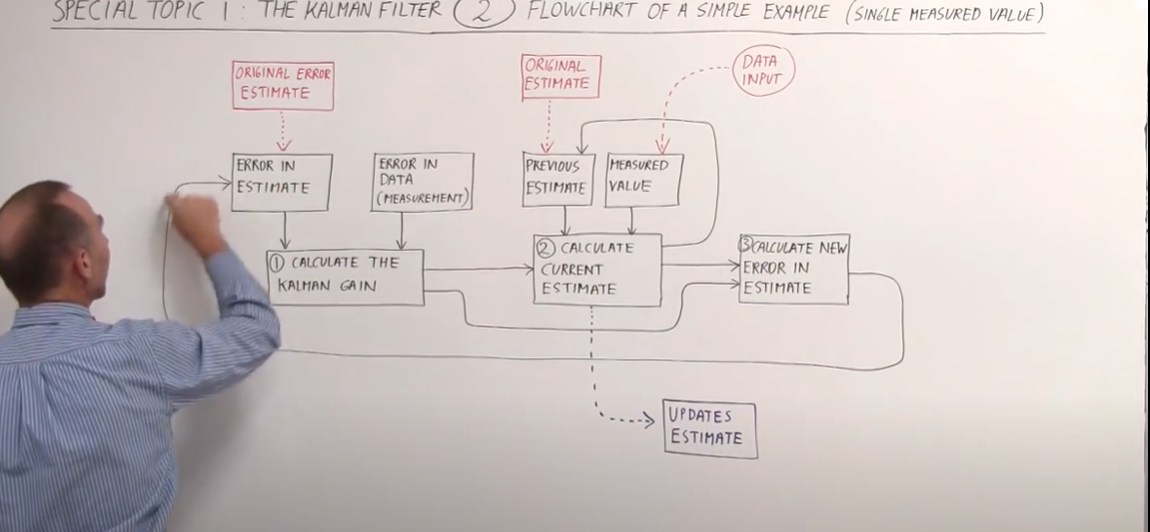 SPECIAL TOPIC 1: THE KALMAN FILTER (2) FLOWCHART OF A SIMPLE EXAMPLE (SINGLE MEASURED VALUE)
ORIGINAL ERROR
ESTIMATE
ORIGINAL
ESTIMATE
DATA
INPUT
ERROR IN
ESTIMATE
ERROR IN
DATA
(MEASUREMENT)
PREVIOUS
ESTIMATE
MEASURED
VALUE
① CALCULATE THE
KALMAN GAIN
② CALCULATE
CURRENT
ESTIMATE
③ CALCULATE NEW
ERROR IN
ESTIMATE
UPDATES
ESTIMATE